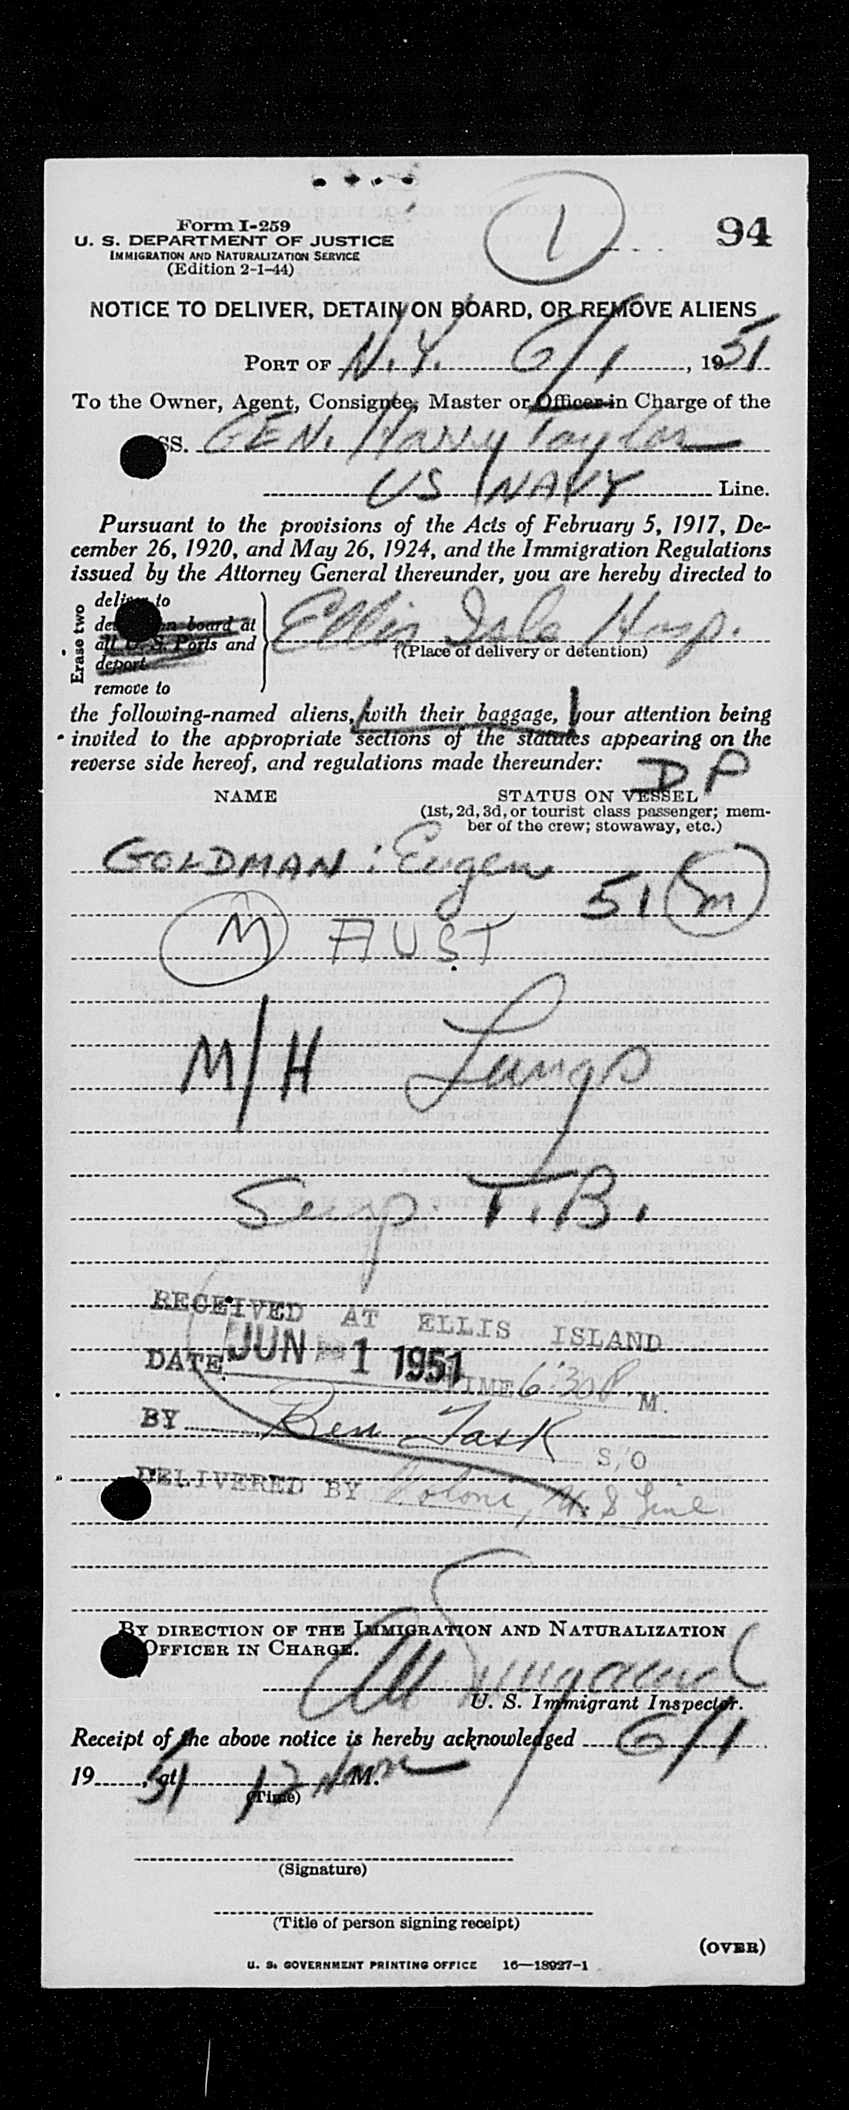 Form I-259
1
94
U. S. DEPARTMENT OF JUSTICE
IMMIGRATION AND NATURALIZATION SERVICE
(Edition 2-1-44)
NOTICE TO DELIVER, DETAIN ON BOARD, OR REMOVE ALIENS
PORT OF N.Y. 6/1, 1951
To the Owner, Agent, Consignee, Master or Officer in Charge of the
SS. GEN. Harry Taylor
US NAVY Line.
Pursuant to the provisions of the Acts of February 5, 1917, De-
cember 26, 1920, and May 26, 1924, and the Immigration Regulations
issued by the Attorney General thereunder, you are hereby directed to
Erase two
deliver to
detain on board at
all U. S. Ports and
deport
remove to
Ellis Isle Hosp.
†(Place of delivery or detention)
the following-named aliens, with their baggage, your attention being
invited to the appropriate sections of the statutes appearing on the
reverse side hereof, and regulations made thereunder:
DP
NAME STATUS ON VESSEL
(1st, 2d, 3d, or tourist class passenger; mem-
ber of the crew; stowaway, etc.)
GOLDMAN : Eugen
51 m
M AUST
M/H Lungs
Susp. T.B.
RECEIVED AT ELLIS ISLAND
DATE JUN 1 1951 TIME 6:30 P M.
BY Ben Task S/O
DELIVERED BY U. S Line
BY DIRECTION OF THE IMMIGRATION AND NATURALIZATION
OFFICER IN CHARGE.
U. S. Immigrant Inspector.
Receipt of the above notice is hereby acknowledged 6/1
19 51, at 12 Noon M.
(Time)
(Signature)
(Title of person signing receipt)
(OVER)
U. S. GOVERNMENT PRINTING OFFICE 16—18927-1